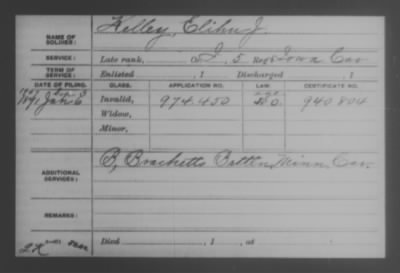 NAME OF SOLDIER: Kelley, Elihu J.
SERVICE: Late rank, Co. I, 5 Reg't Iowa Cav
TERM OF SERVICE: Enlisted , 1 Discharged , 1
DATE OF FILING. CLASS. APPLICATION NO. LAW. CERTIFICATE NO.
1891 Jan 6 Invalid, 974.450 940804
Widow,
Minor,
ADDITIONAL SERVICES: B, Bracketts Battln Minn. Cav.
REMARKS:
Died , 1 , at